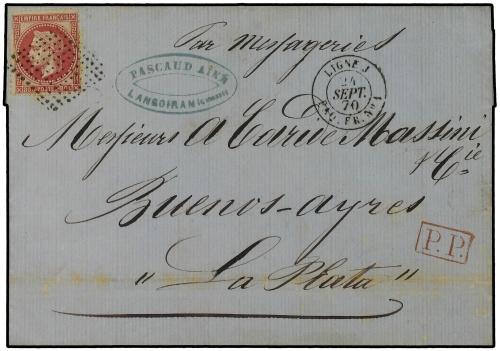 EMPIRE FRANÇAIS
Par Messageries
PASCAUD AÎNÉ
LANGOIRAN (GIRONDE)
LIGNE J
24
SEPT.
70
PAQ. FR. No 1
Messieurs A Massini
& Cie
Buenos-ayres
"La Plata"
P.P.